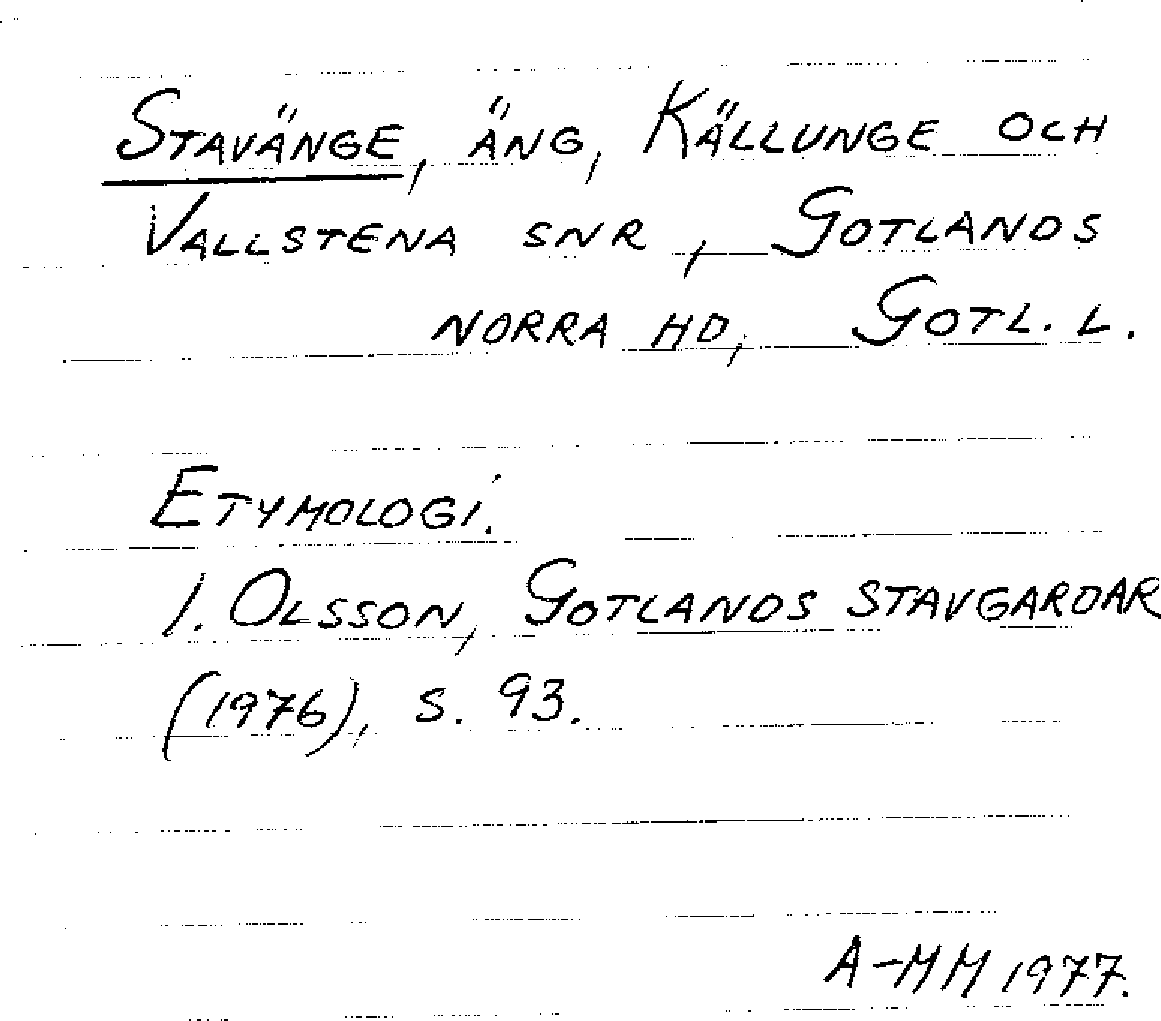 Stavänge, äng, Källunge och
Vallstena snr, Gotlands
norra hd, Gotl. l.
Etymologi.
I. Olsson, Gotlands stavgardar
(1976), s. 93.
A-MM 1977.